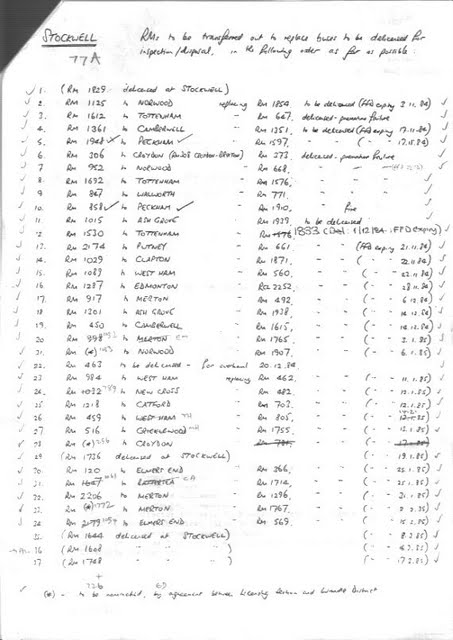 STOCKWELL
77A
RMs to be transferred out to replace buses to be delicensed for
inspection/disposal, in the following order as far as possible:
✓ 1. (RM 1829 delicensed at STOCKWELL)
✓ 2. RM 1125 to NORWOOD replacing RM 1854 to be delicensed (FFD expiry 2.11.84) ✓
✓ 3. RM 1612 to TOTTENHAM " RM 647, delicensed - premature failure ✓
✓ 4. RM 1361 to CAMBERWELL " RM 1351, to be delicensed (FFD expiry 17.11.84) ✓
✓ 5. RM 1948 ✓ to PECKHAM ✓ " RM 1597, " (" " 17.11.84) ✓
✓ 6. RM 306 to CROYDON " RM 273, delicensed - premature failure ✓
✓ 7. RM 952 to NORWOOD " RM 668, " ✓
✓ 8. RM 1692 to TOTTENHAM " RM 1576, " ✓
✓ 9. RM 867 to WALWORTH " RM 771, " ✓
✓ 10. RM 858 ✓ to PECKHAM ✓ " RM 1910, " fire ✓
✓ 11. RM 1015 to ASH GROVE " RM 1939, to be delicensed ✓
✓ 12 RM 1530 to TOTTENHAM " RM 1833 (Del: 1/12/84: FFD expiry) ✓
✓ 13. RM 2174 to PUTNEY " RM 661, (FFD expiry 21.11.84) ✓
✓ 14. RM 1029 to CLAPTON " RM 1871, (" " 22.11.84) ✓
✓ 15. RM 1089 to WEST HAM " RM 560, (" " 22.11.84) ✓
✓ 16. RM 1287 to EDMONTON " RM 2252, (" " 28.11.84) ✓
✓ 17. RM 917 to MERTON " RM 492, (" " 6.12.84) ✓
✓ 18. RM 1201 to ASH GROVE " RM 1938, (" " 14.12.84) ✓
✓ 19. RM 450 to CAMBERWELL " RM 1615, (" " 14.12.84) ✓
✓ 20 RM 998 to MERTON " RM 1765, (" " 2.1.85) ✓
✓ 21. RM (*) to NORWOOD " RM 1907, (" " 6.1.85) ✓
✓ 22. RM 463 to be delicensed - for overhaul 20.12.84
✓ 23 RM 984 to WEST HAM replacing RM 462, (" " 11.1.85) ✓
✓ 24. RM 1032 to NEW CROSS " RM 482, (" " 12.1.85) ✓
✓ 25 RM 1218 to CATFORD " RM 703, (" " 12.1.85) ✓
✓ 26 RM 459 to WEST HAM " RM 805, (" " 12.1.85) ✓
✓ 27 RM 516 to CRICKLEWOOD " RM 1755, (" " 12.1.85) ✓
✓ 28 RM (*) to CROYDON " (" " 17.1.85) ✓
✓ 29 (RM 1736 delicensed at STOCKWELL) (" " 19.1.85) ✓
✓ 30. RM 120 to ELMERS END " RM 366, (" " 20.1.85) ✓
✓ 31. RM to BATTERSEA " RM 1714, (" " 25.1.85) ✓
✓ 32. RM 2206 to MERTON " RM 1296, (" " 31.1.85) ✓
✓ 33. RM (*) to MERTON " RM 1767, (" " 2.2.85) ✓
✓ 34. RM 2179 to ELMERS END " RM 569, (" " 15.2.85) ✓
35. (RM 1644 delicensed at STOCKWELL) (" " 8.2.85) ✓
36 (RM 1608 " " ) (" " 14.2.85) ✓
37 (RM 1748 " " ) (" " 17.2.85) ✓
+
726
(*) - to be nominated, by agreement between Licensing Section and District